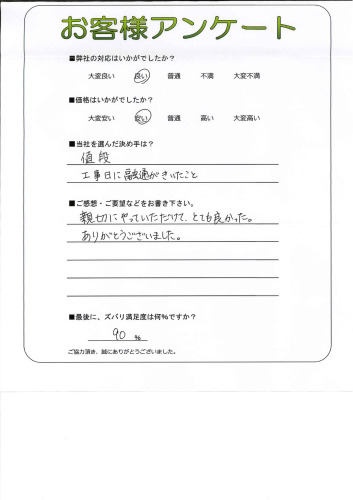 お客様アンケート
■弊社の対応はいかがでしたか?
大変良い 良い 普通 不満 大変不満
■価格はいかがでしたか?
大変安い 安い 普通 高い 大変高い
■当社を選んだ決め手は?
値段
工事日に融通がきいたこと
■ご感想・ご要望などをお書き下さい。
親切にやっていただけて、とても良かった。
ありがとうございました。
■最後に、ズバリ満足度は何%ですか?
90 %
ご協力頂き、誠にありがとうございました。